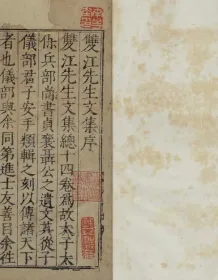 雙江先生文集序
雙江先生文集總十四卷爲故太子太
保兵部尚書貞襄聶公之遺文其從子
儀部君子安手類輯之刻以傳諸天下
者也儀部與余同第進士友善目余往